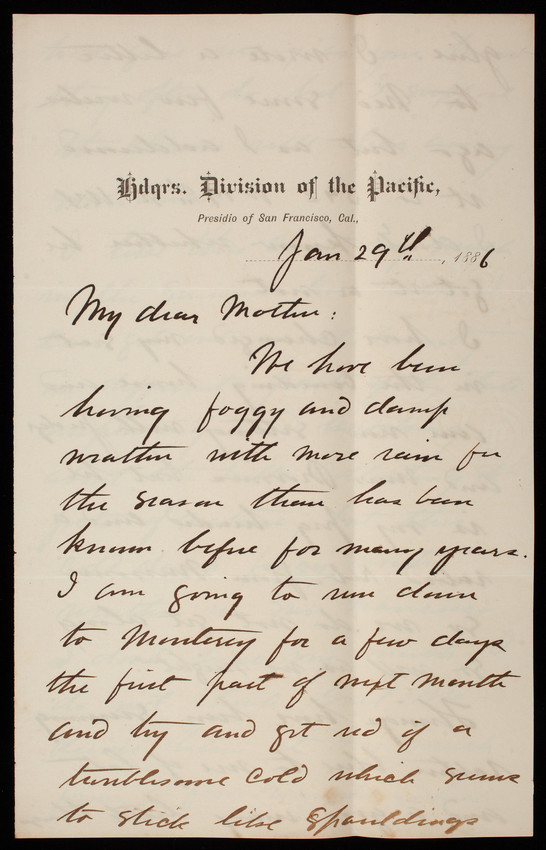 Hdqrs. Division of the Pacific,
Presidio of San Francisco, Cal.,
Jan 29th, 1886
My dear Mother:
We have been
having foggy and damp
weather with more rain for
the season than has been
known before for many years.
I am going to run down
to Monterey for a few days
the first part of next month
and try and get rid of a
troublesome cold which seems
to stick like Spauldings